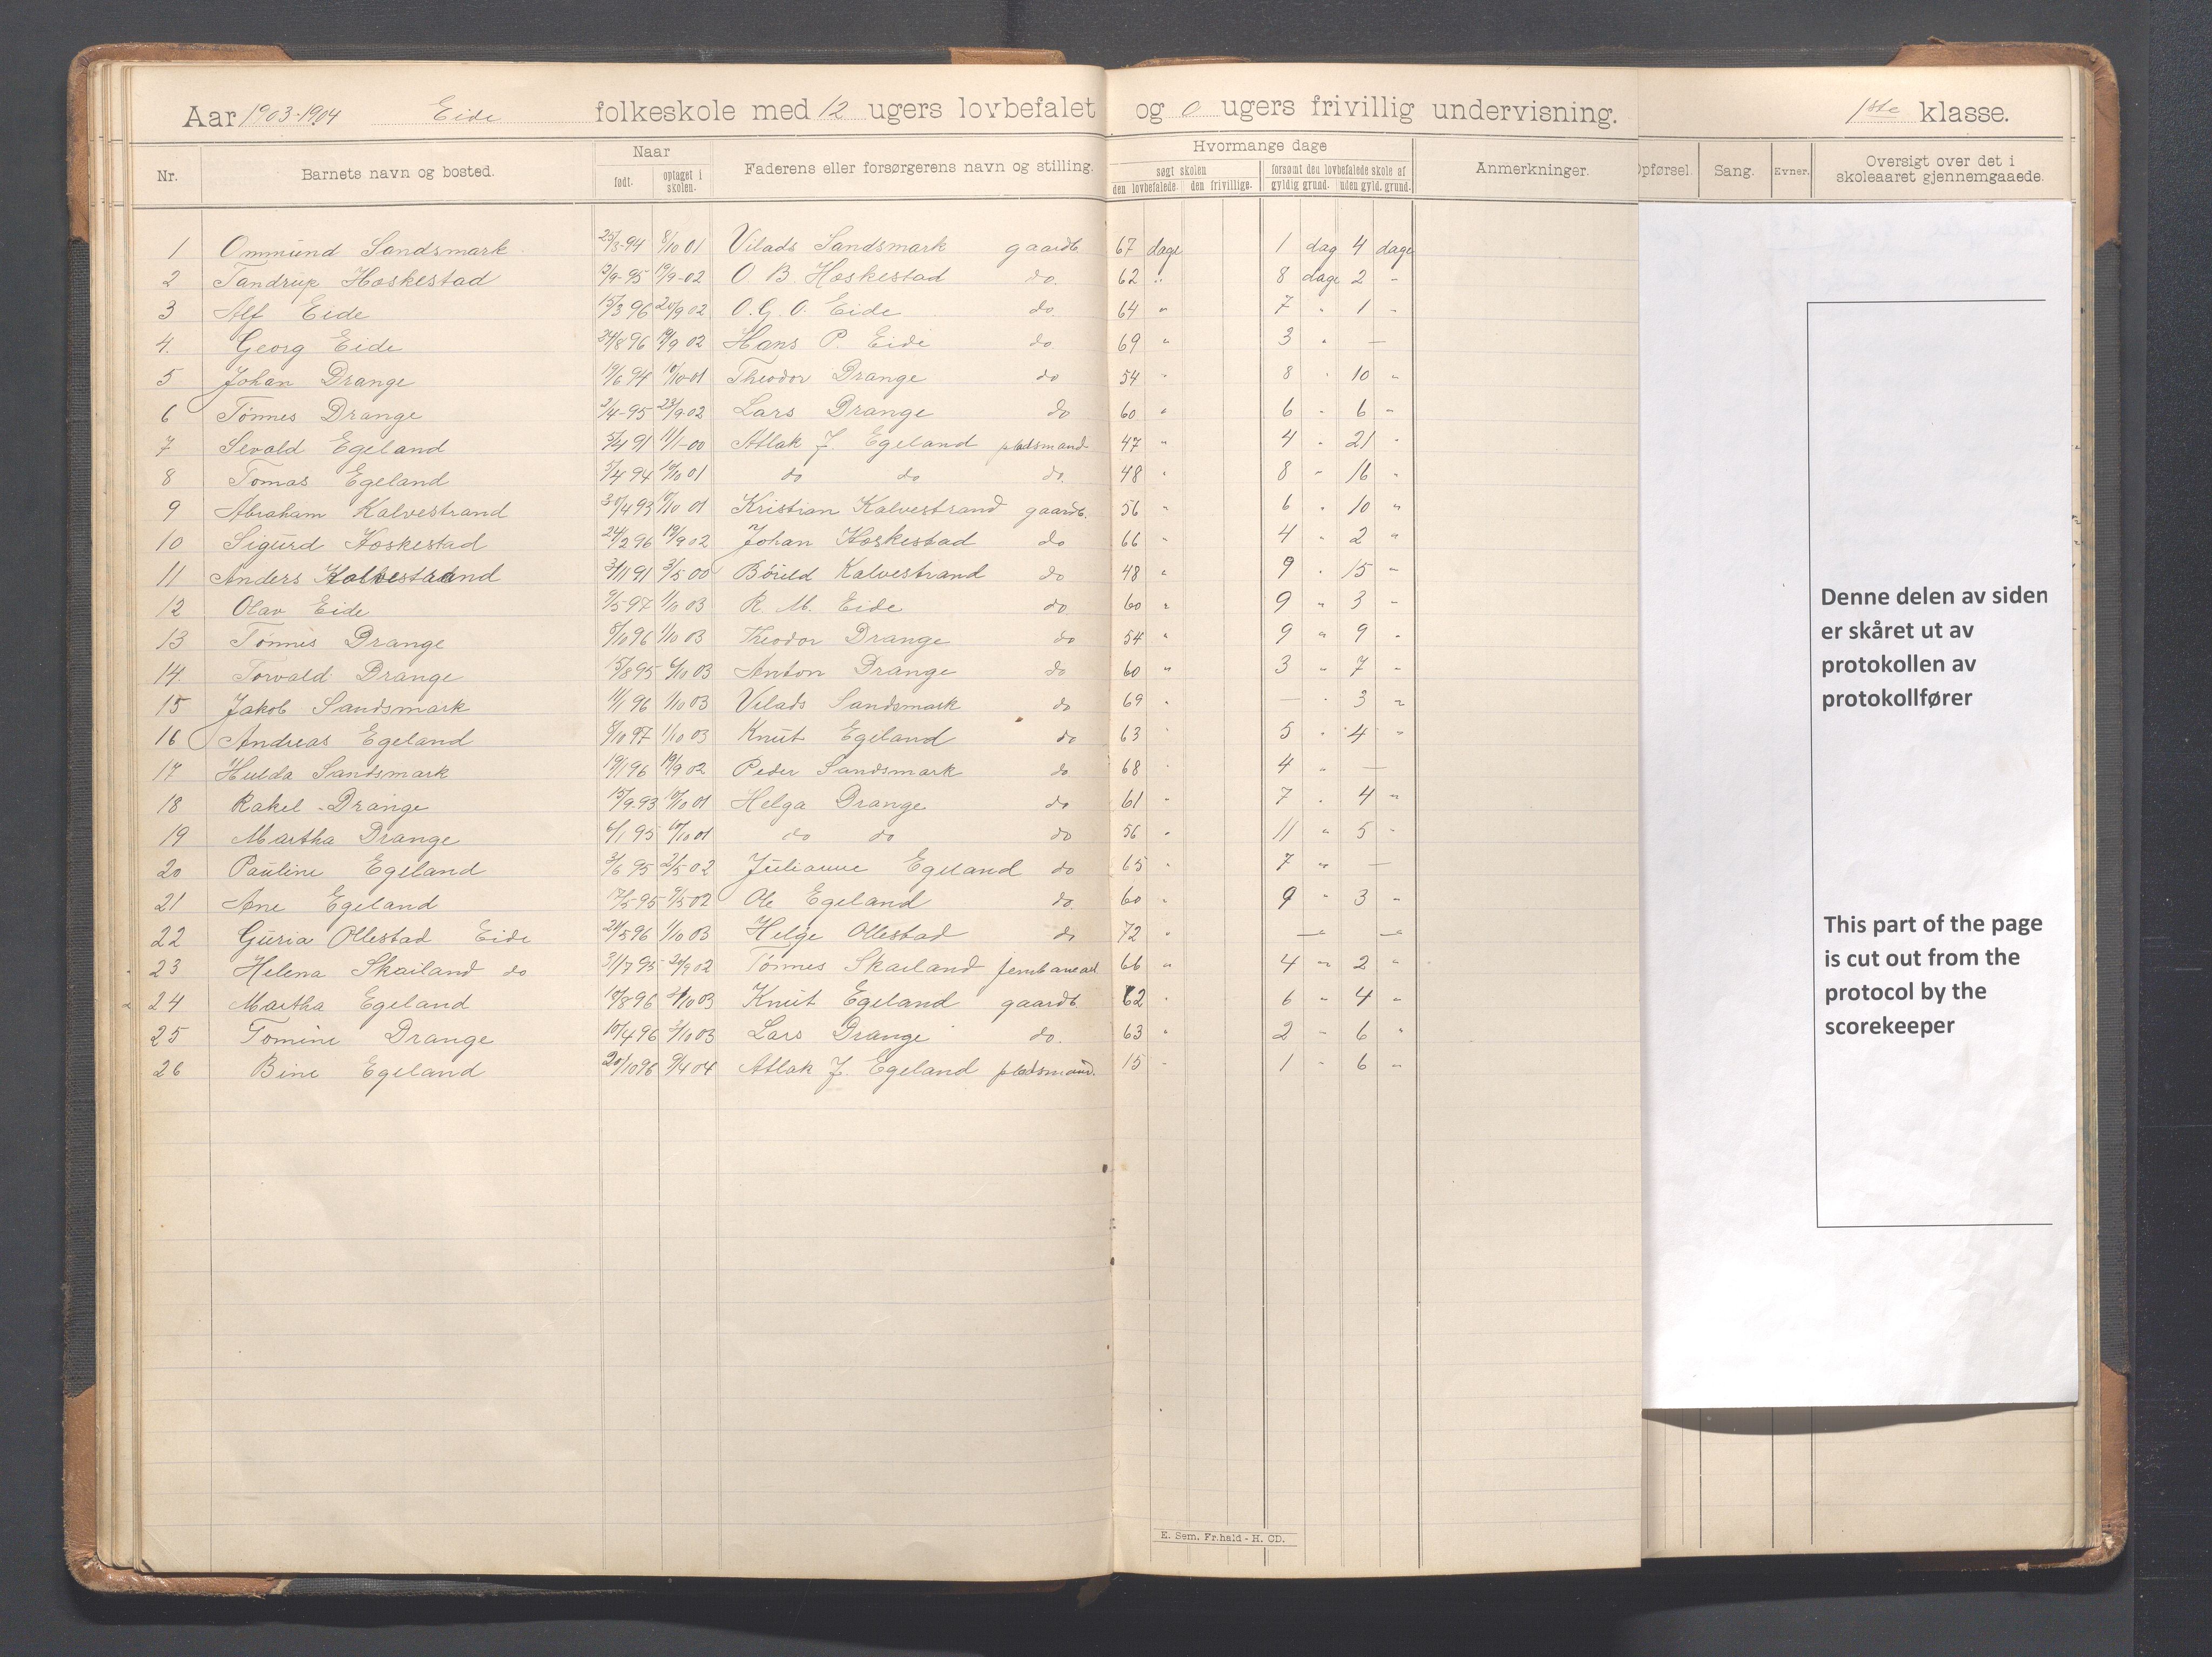 Aar 1903-1904 Eide folkeskole med 12 ugers lovbefalet og 0 ugers frivillig undervisning. 1ste klasse.
Nr. Barnets navn og bosted. Naar født. optaget i skolen. Faderens eller forsørgerens navn og stilling. Hvormange dage søgt skolen den lovbefalede. den frivillige. forsømt den lovbefalede skole af gyldig grund. uden gyld. grund. Anmerkninger. Opførsel. Sang. Evner. Oversigt over det i skoleaaret gjennemgaaede.
1 Ommund Sandsmark 25/3-94 8/10 01 Vilads Sandsmark gaardb. 67 dage 1 dag 4 dage
2 Tandrup Hoskestad 19/9-02 O. B. Hoskestad do. 62 " 8 dage 2 "
3 Alf Eide 15/3 96 20/9 02 O. G. O. Eide do. 64 " 7 " 1 "
4. Georg Eide 24/8 96 19/9 02 Hans P. Eide do 69 " 3 " —
5 Johan Drange 19/6 94 10/10-01 Theodor Drange do 54 " 8 " 10 "
6 Tønnes Drange 3/4-95 23/9 02 Lars Drange do 60 " 6 " 6 "
7 Sevald Egeland 5/4 91 11/1-00 Atlak J. Egeland pladsmand 47 " 4 " 21 "
8 Tomas Egeland 5/4 94 10/10 01 do do do. 48 " 8 " 16 "
9 Abraham Kalvestrand 30/4 93 Kristian Kalvestrand gaardb. 56 " 6 " 10 "
10 Sigurd Hoskestad 24/2 96 19/9 02 Johan Hoskestad do 66 " 4 " 2 "
11 Anders Kalvestrand 3/11 91 3/5 00 Børild Kalvestrand do 48 " 9 " 15 "
12 Olav Eide 9/5-97 1/10 03 R. M. Eide do 60 " 9 " 3 "
13 Tønnes Drange 8/10 96 1/10 03 Theodor Drange do 54 " 9 " 9 "
14. Torvald Drange 15/8 95 6/10 03 Anton Drange do 60 " 3 " 7 "
15 Jakob Sandsmark 11/1 96 1/10 03 Vilads Sandsmark do 69 " — " 3 "
16 Andreas Egeland 8/10 97 1/10 03 Knut Egeland do 63 " 5 " 4 "
17 Hulda Sandsmark 19/1 96 19/9 02 Peder Sandsmark do 68 " 4 " —
18 Rakel Drange 15/9-93 10/10 01 Helga Drange do 61 " 7 " 4 "
19 Martha Drange 6/1 95 10/10 01 do do do 56 " 11 " 5 "
20 Pauline Egeland 3/6 95 2/5 02 Julianne Egeland do 65 " 7 " —
21 Ane Egeland Ole Egeland do. 60 " 9 " 3 "
22 Guria Ollestad Eide 21/5 96 1/10 03 Helge Ollestad do 72 " — —
23 Helena Skailand do 31/7 95 20/9 02 Tønnes Skailand 66 " 4 " 2 "
24 Martha Egeland 10/8 96 2/10 03 Knut Egeland gaardb. 62 " 6 " 4 "
25 Tomine Drange 10/4 96 2/10 03 Lars Drange do. 63 " 2 " 6 "
26 Bine Egeland 20/10 96 9/4 04 Atlak J. Egeland pladsmand. 15 " 1 " 6 "
Denne delen av siden
er skåret ut av
protokollen av
protokollfører
This part of the page
is cut out from the
protocol by the
scorekeeper
E. Sem. Fr.hald - H. CD.